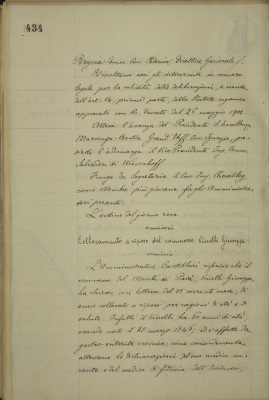 434
Direttore Generale.
Risultano così gli intervenuti in numero
legale per la validità delle deliberazioni, a mente
dell'art. 14, prima parte, dello Statuto organico
approvato con R. Decreto del 2 maggio 1900
Attesa l'assenza del Presidente
Grand' Uff. Ignazio, pre-
siede l'adunanza il Vice Presidente Ing. Comm.
Salvadori di Wiesenhoff.
Funge da Segretario il Cav. Ing.
come Membro più giovane fra gli Amministra-
tori presenti.
L'ordine del giorno reca:
omissis
Collocamento a riposo del commesso Vivelli Giuseppe
omissis
L'Amministratore Castellari riferisce che il
commesso del Monte di Pietà, Vivelli Giuseppe,
ha chiesto, con lettera del 15 corrente mese, di
essere collocato a riposo per ragioni d'età e di
salute. Infatti il Vivelli ha 60 anni di età,
essendo nato il 21 marzo 1848, ed è affetto da
gastro-enterite cronica, come concordemente
attestano le dichiarazioni del suo medico cu-
rante e del medico di fiducia dell'